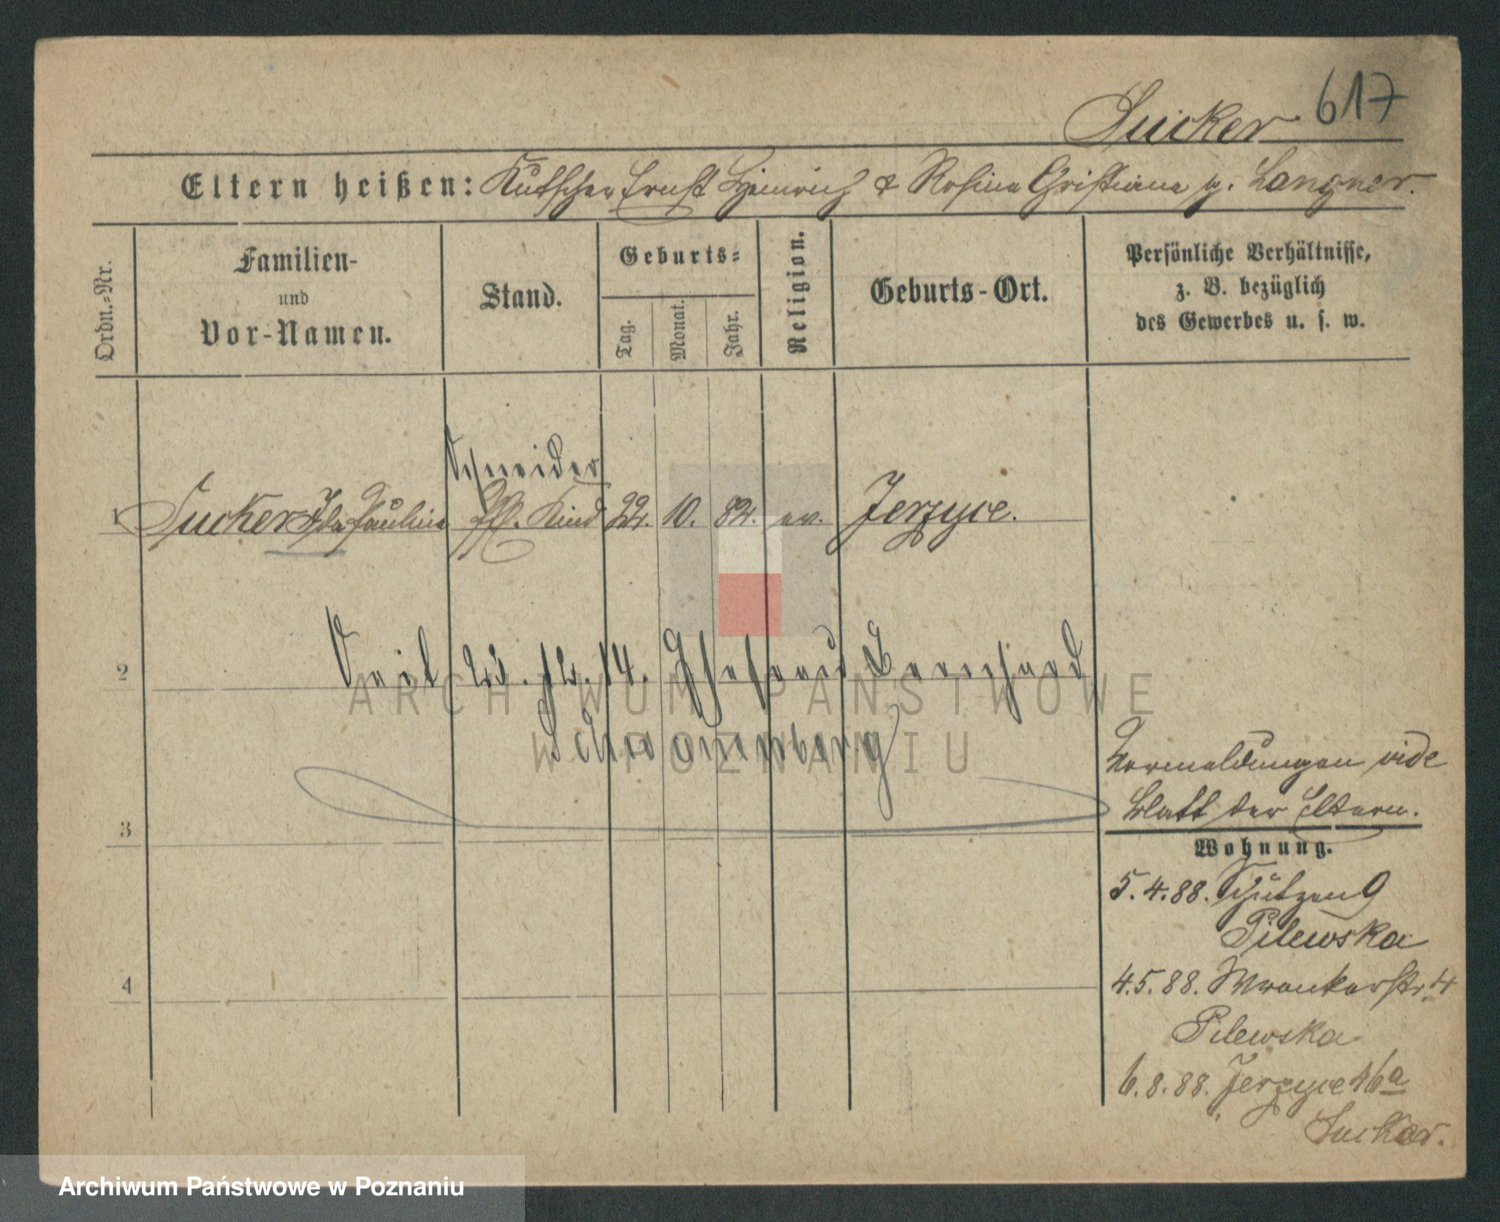 617
Sucker
Eltern heißen: Kutscher Ernst Heinrich & Rosina Christiane g. Langner.
Ordn.=Nr.
Familien-
und
Vor-Namen.
Stand.
Geburts=
Tag.
Monat.
Jahr.
Religion.
Geburts-Ort.
Persönliche Verhältnisse,
z. B. bezüglich
des Gewerbes u. s. w.
Schneider
1 Sucker Ida Pauline Kind 22. 10. 82. ev. Jerzyce.
2 Seit 23. 12. 14. Ehefrau Bernhard
ARCHIWUM PAŃSTWOWE
W POZNANIU
3
4
Vermeldungen vide
Blatt der Eltern.
Wohnung.
5.4.88. Schützen 9
Pilewska
4.5.88. Wronkerstr. 4
Pilewska
6.8.88. Jerzyce 46a
Sucker.
Archiwum Państwowe w Poznaniu